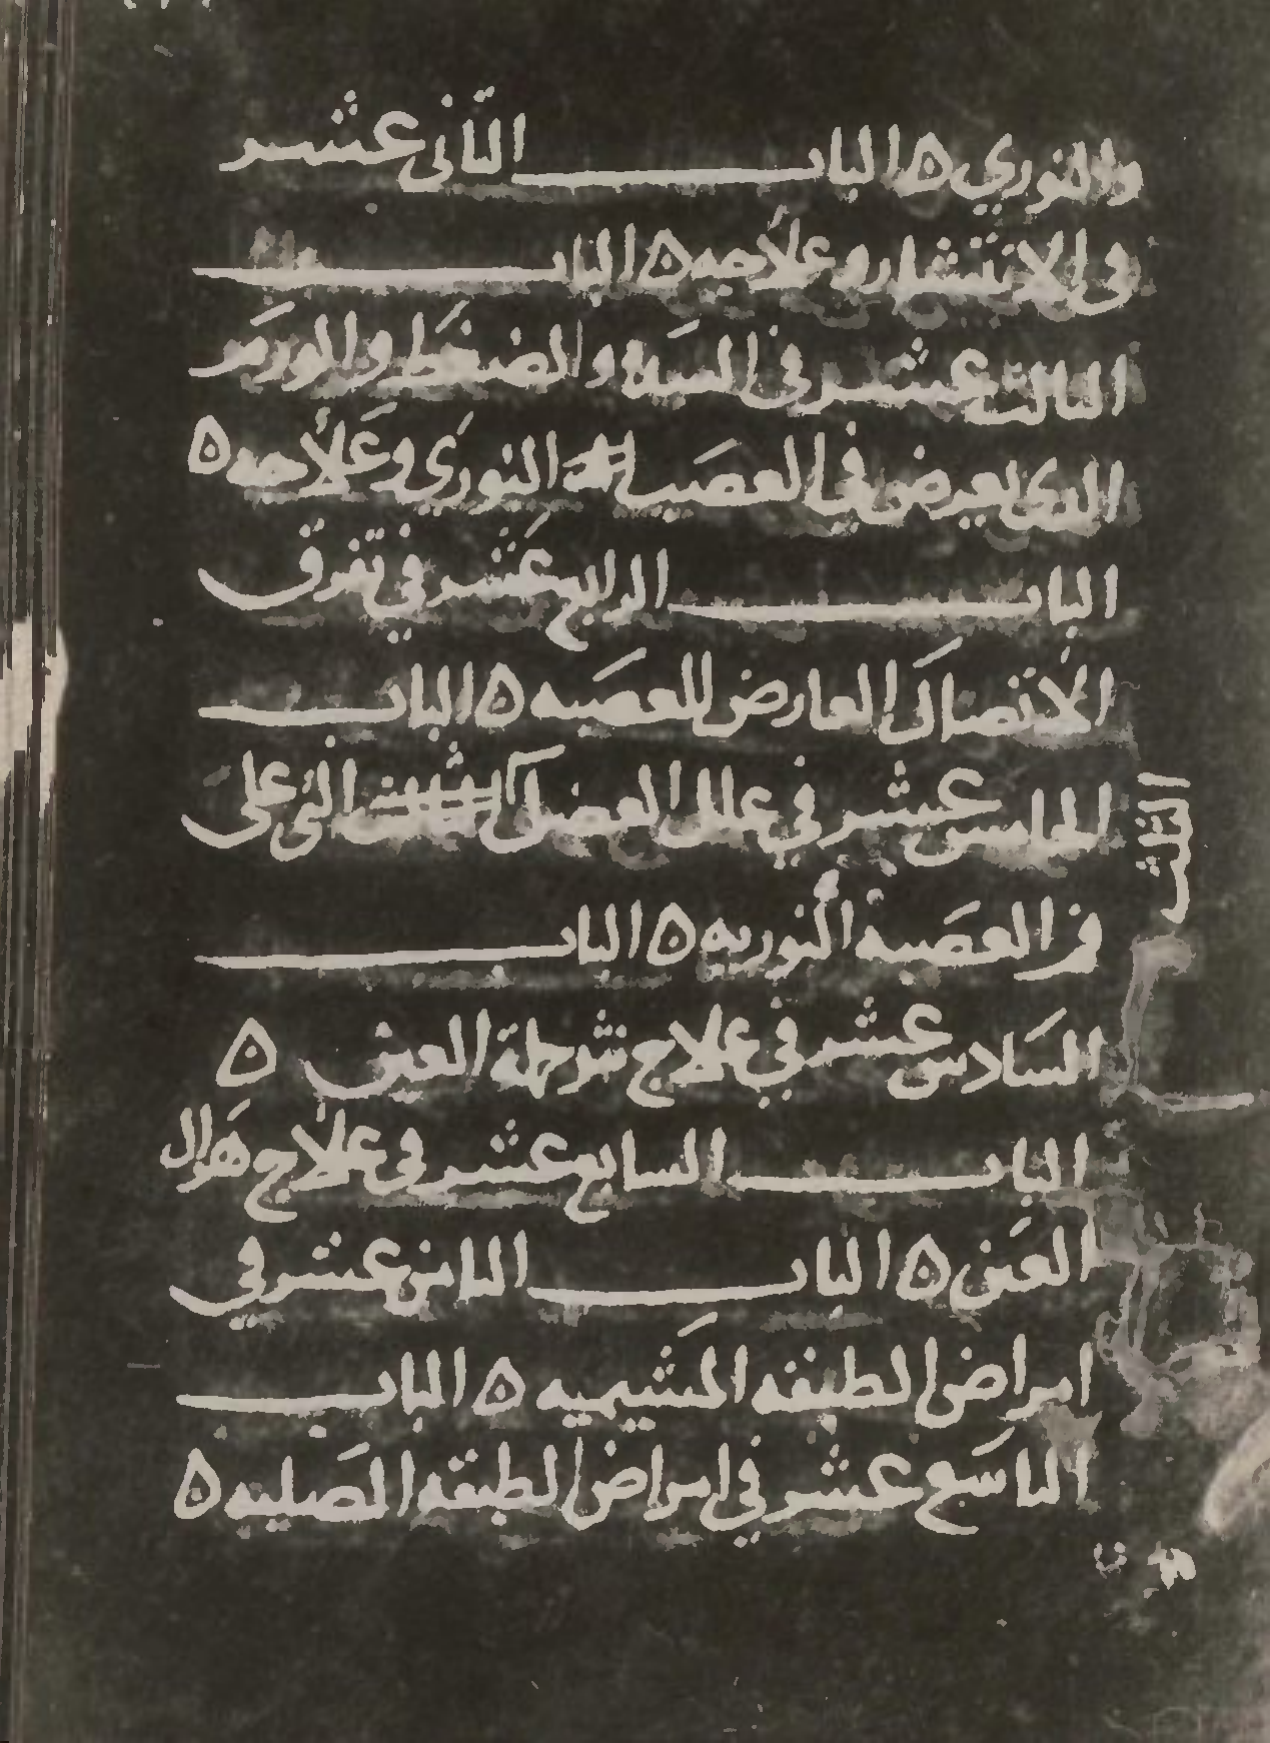 والنوري ٥ الباب الثانى عشر
فى الانتشار وعلاجه ٥ الباب
الثالث عشر في السدة والضغط والورم
الدى يعرض في العصبه النوري وعلاجه ٥
الباب الرابع عشر في تفرق
الاتصال العارض للعصبه ٥ الباب
الخامس عشر في علل العضل التى على
فم العصبه النوريه ٥ الباب
السادس عشر في علاج شرطة العين ٥
الباب السابع عشر فى علاج هزال
العين ٥ الباب الثامن عشر في
امراض الطبقه المشيميه ٥ الباب
التاسع عشر في امراض الطبقه الصلبيه ٥